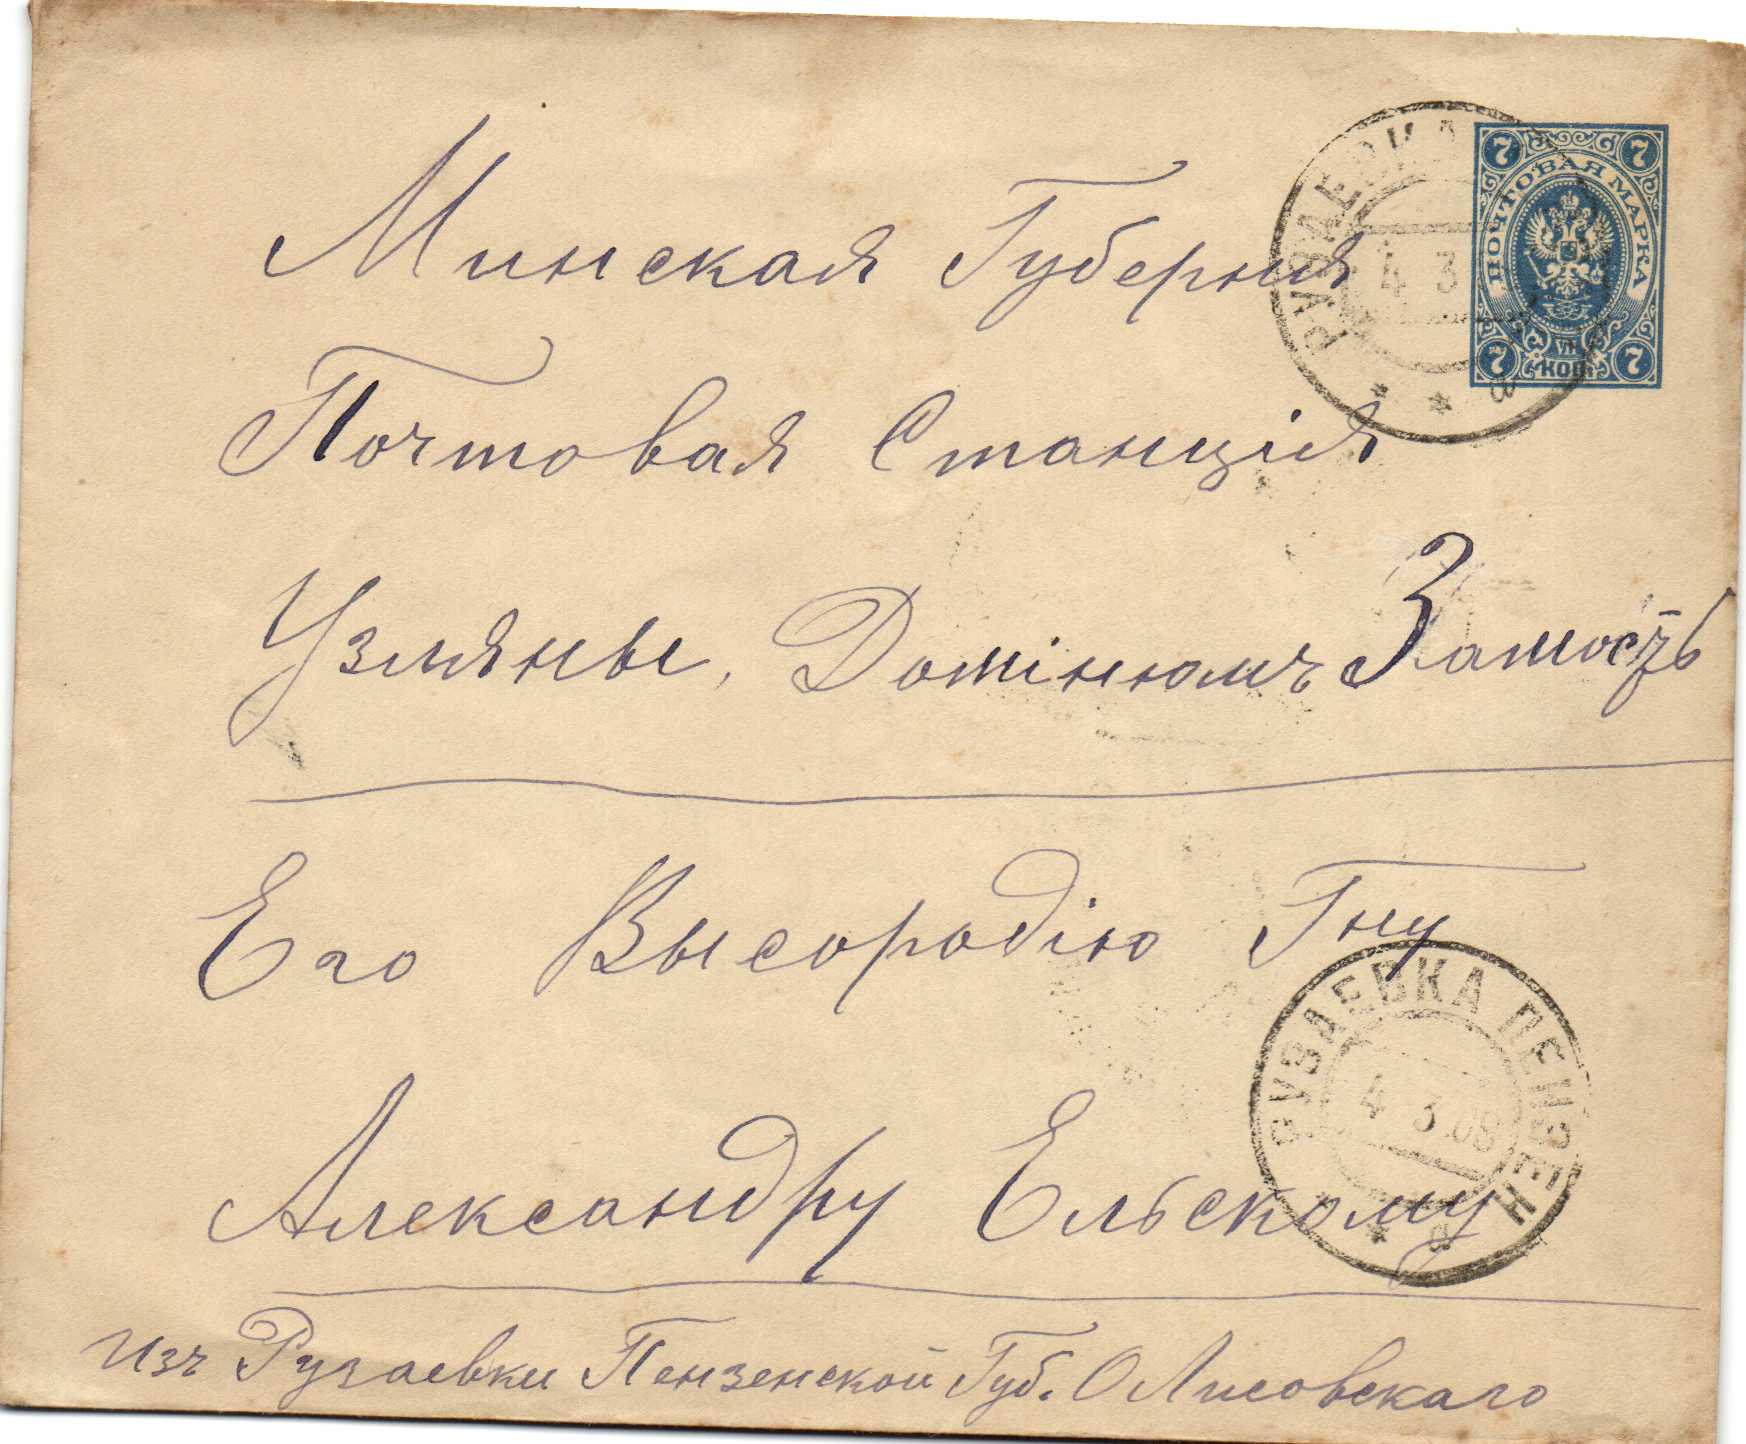 7 7
ПОЧТОВАЯ МАРКА
7 VII КОП. 7
4 3
Минская Губернія
Почтовая Станція
Узляны, Домініюмъ Замосць
Его Высородію Гну
РУЗАЕВКА ПЕНЗЕН
4 3 08
Александру Ельскому
изъ Рузаевки Пензенской Губ. О Лисовскаго